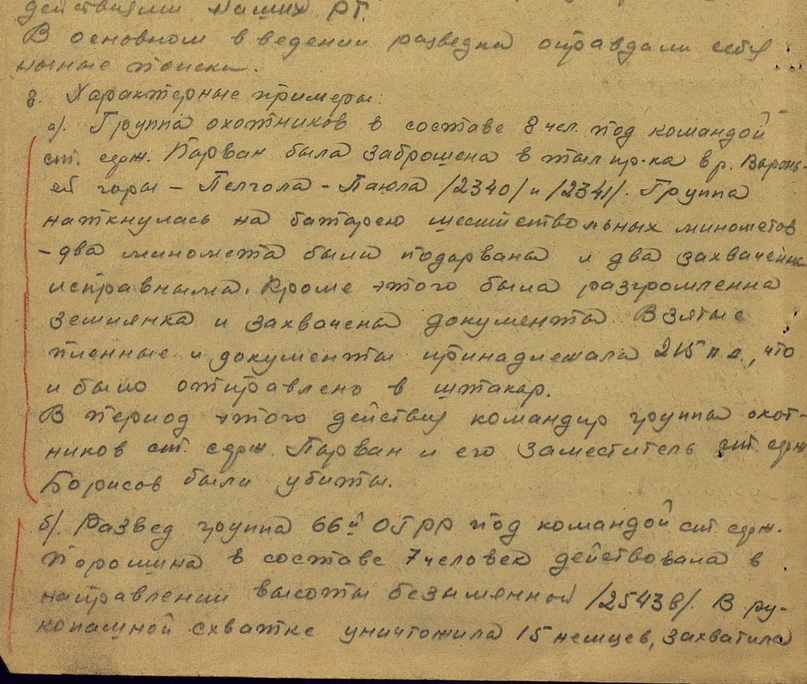 действиями наших РГ.
В основном в ведении разведки оправдали себя
ночные поиски.
8. Характерные примеры:
а/. Группа охотников в составе 8 чел. под командой
ст. серж. Парван была заброшена в тыл пр-ка в р. Воронь-
ей горы – Пелгола – Паюла /2340/ и /2341/. Группа
наткнулась на батарею шестиствольных минометов
– два миномета были подорваны и два захвачены
исправными. Кроме этого была разгромленна
землянка и захвачены документы. Взятые
пленные и документы принадлежали 215 п.д., что
и было отправлено в штакор.
В период этого действия командир группы охот-
ников ст. серж. Парван и его заместитель ст. серж
Борисов были убиты.
б/. Развед группа 66й ОГРР под командой ст. серж.
Порошина в составе 7 человек действовала в
направлении высоты безымянной /2543в/. В ру-
копашной схватке уничтожила 15 немцев, захватила